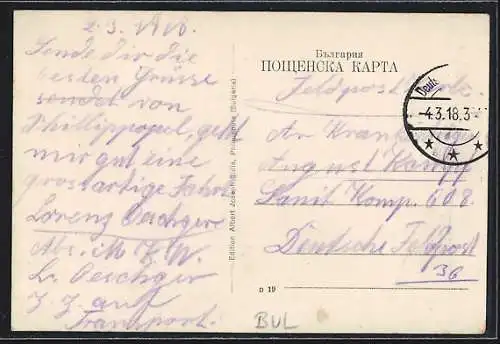 2.3.1918.
Sende dir die
besten Grüsse
sendet von
Phillippopel, geht
mir gut eine
grossartige Fahrt
Lorenz Oechger
Abs. M.
L. Oechger
z. Z. auf
Transport.
Edition Albert Philippople (Bulgarie)
България
ПОЩЕНСКА КАРТА
Feldpost
Deuts
-4.3.18.3-
An
August
Sanit Komp. 608.
Deutsche Feldpost
36
D 19
BUL